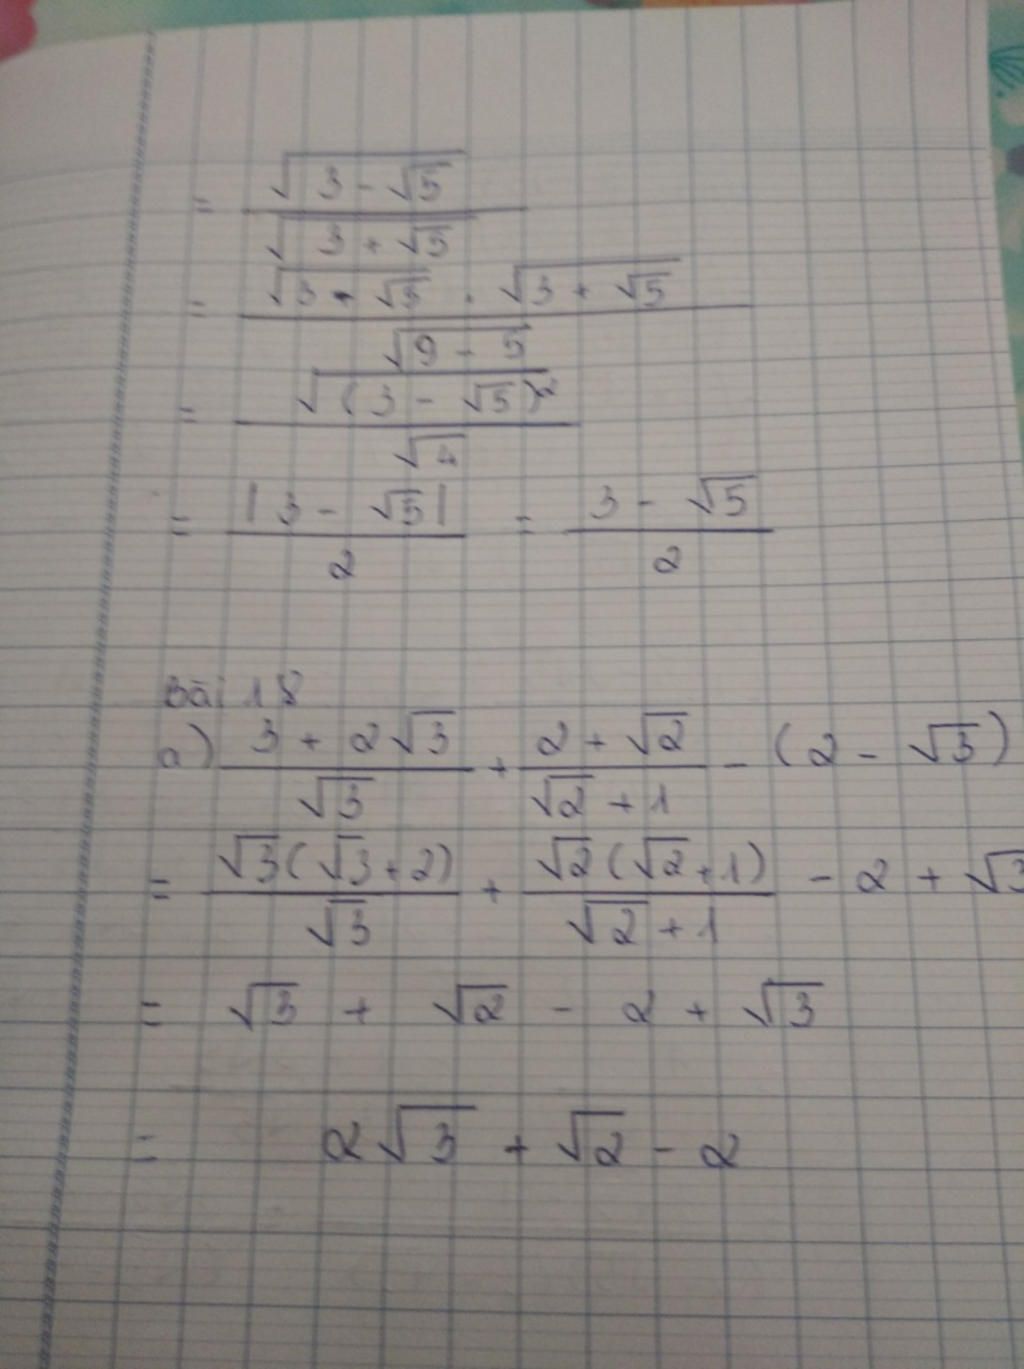 = √(3 - √5) / √(3 + √5)
= √(3 - √5) . √(3 + √5) / √(9 - 5)
= √((3 - √5)²) / √4
= |3 - √5| / 2 = (3 - √5) / 2
Bài 18
a) (3 + 2√3) / √3 + (2 + √2) / (√2 + 1) - (2 - √3)
= √3(√3 + 2) / √3 + √2(√2 + 1) / (√2 + 1) - 2 + √3
= √3 + √2 - 2 + √3
= 2√3 + √2 - 2